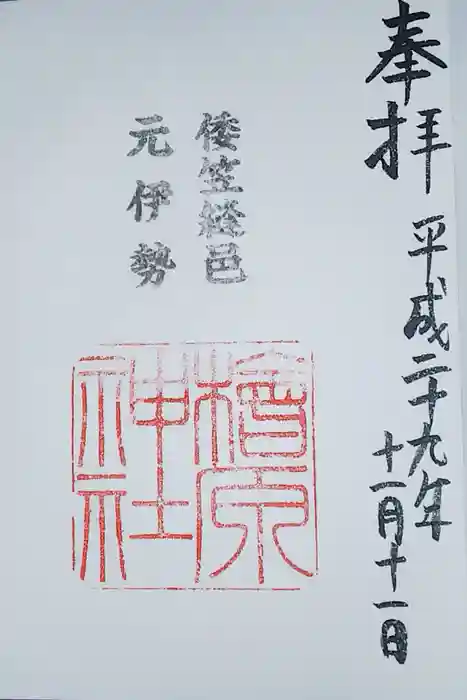 奉拝
平成二十九年
十一月十一日
倭笠縫邑
元伊勢
檜原
神社